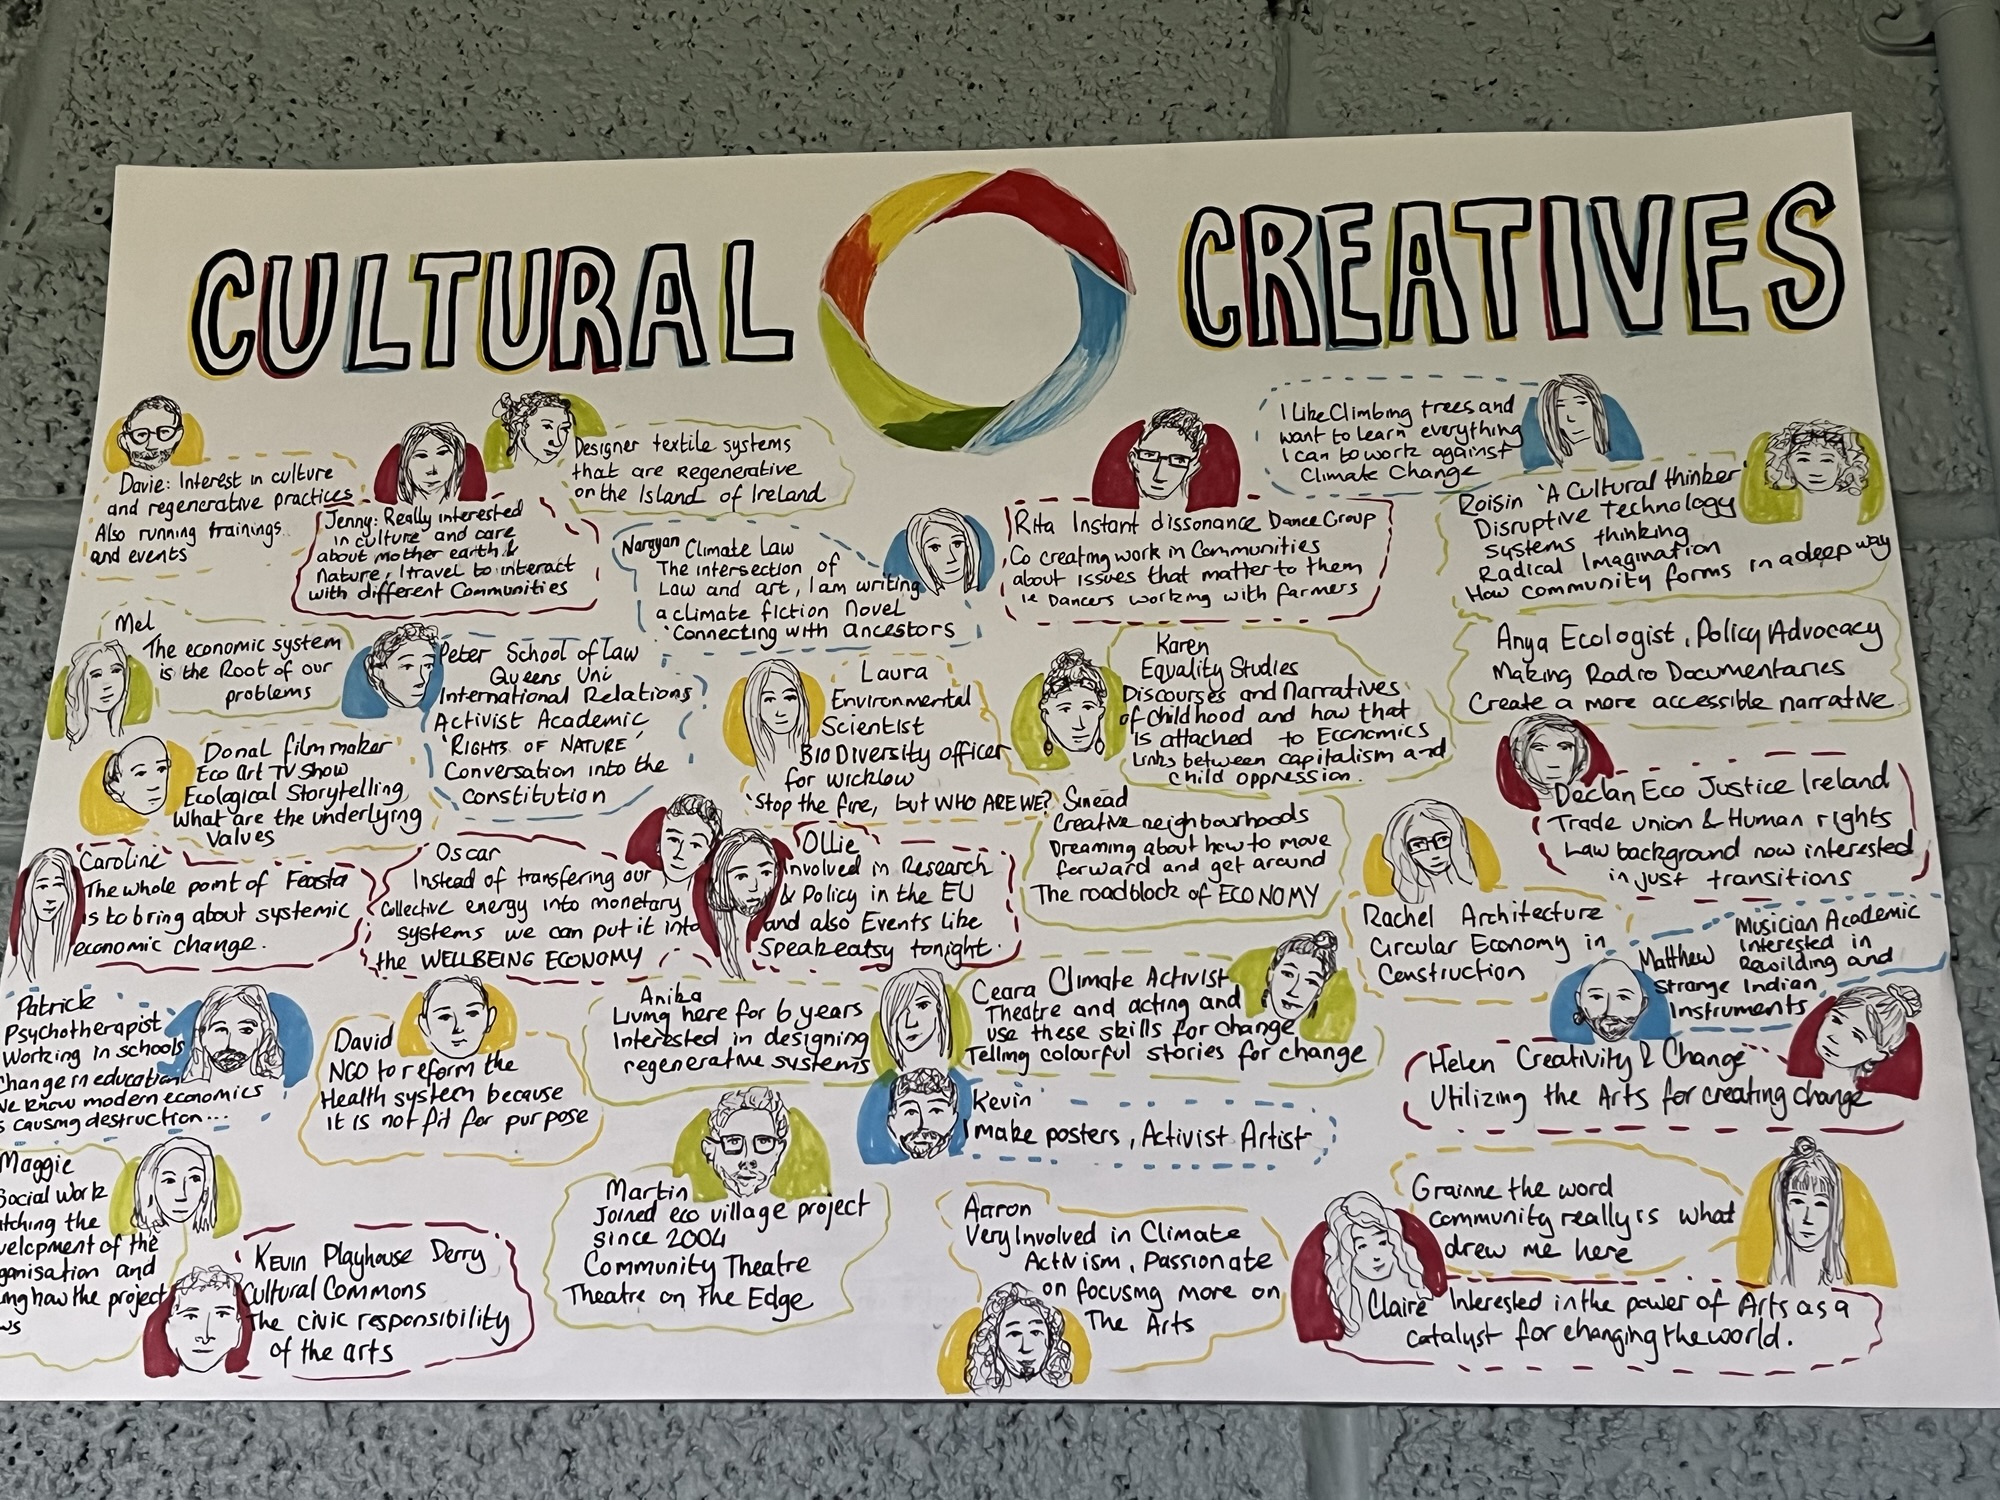 CULTURAL CREATIVES
Davie: Interest in culture
and regenerative practices
Also running trainings
and events
Jenny: Really interested
in culture and care
about mother earth &
nature, I travel to interact
with different Communities
Designer textile systems
that are Regenerative
on the Island of Ireland
Narayan Climate Law
The intersection of
Law and art, I am writing
a climate fiction Novel
'Connecting with ancestors
Rita Instant dissonance Dance Group
Co creating work in Communities
about issues that matter to them
ie Dancers working with farmers
I Like Climbing trees and
want to learn everything
I can to work against
Climate Change
Roisin 'A Cultural thinker'
Disruptive Technology
Systems thinking
Radical Imagination
How community forms in a deep way
Mel
The economic system
is the Root of our
problems
Peter School of Law
Queens Uni
International Relations
Activist Academic
'RIGHTS OF NATURE'
Conversation into the
constitution
Laura
Environmental
Scientist
BioDiversity officer
for Wicklow
'Stop the fire, but WHO ARE WE?
Karen
Equality Studies
Discourses and Narratives
of Childhood and how that
is attached to Economics
Links between capitalism and
child oppression.
Anya Ecologist, Policy Advocacy
Making Radio Documentaries
Create a more accessible narrative
Donal film maker
Eco Art TV Show
Ecological Storytelling
What are the underlying
Values
Declan Eco Justice Ireland
Trade union & Human rights
Law background now interested
in just transitions
Caroline
The whole point of Feasta
is to bring about systemic
economic change.
Oscar
Instead of transfering our
Collective energy into monetary
systems we can put it into
the WELLBEING ECONOMY
Ollie
Involved in Research
& Policy in the EU
and also Events like
Speakeatsy tonight.
Sinead
Creative neighbourhoods
Dreaming about how to move
forward and get around
The roadblock of ECONOMY
Rachel Architecture
Circular Economy in
Construction
Matthew Musician Academic
Interested in
Rewilding and
Strange Indian
Instruments
Patrick
Psychotherapist
Working in schools
Change in education
We know modern economics
is causing destruction...
David
NGO to reform the
Health system because
it is not fit for purpose
Anika
Living here for 6 years
Interested in designing
regenerative systems
Ceara Climate Activist
Theatre and acting and
use these skills for change
Telling colourful stories for change
Helen Creativity & Change
Utilizing the Arts for creating change
Kevin
make posters, Activist Artist
Maggie
Social work
the
of the
and
how the project
Kevin Playhouse Derry
Cultural Commons
The civic responsibility
of the arts
Martin
Joined eco village project
since 2004
Community Theatre
Theatre on The Edge
Aaron
Very Involved in Climate
Activism, Passionate
on focusing more on
The Arts
Grainne the word
community really is what
drew me here
Claire Interested in the power of Arts as a
catalyst for changing the world.